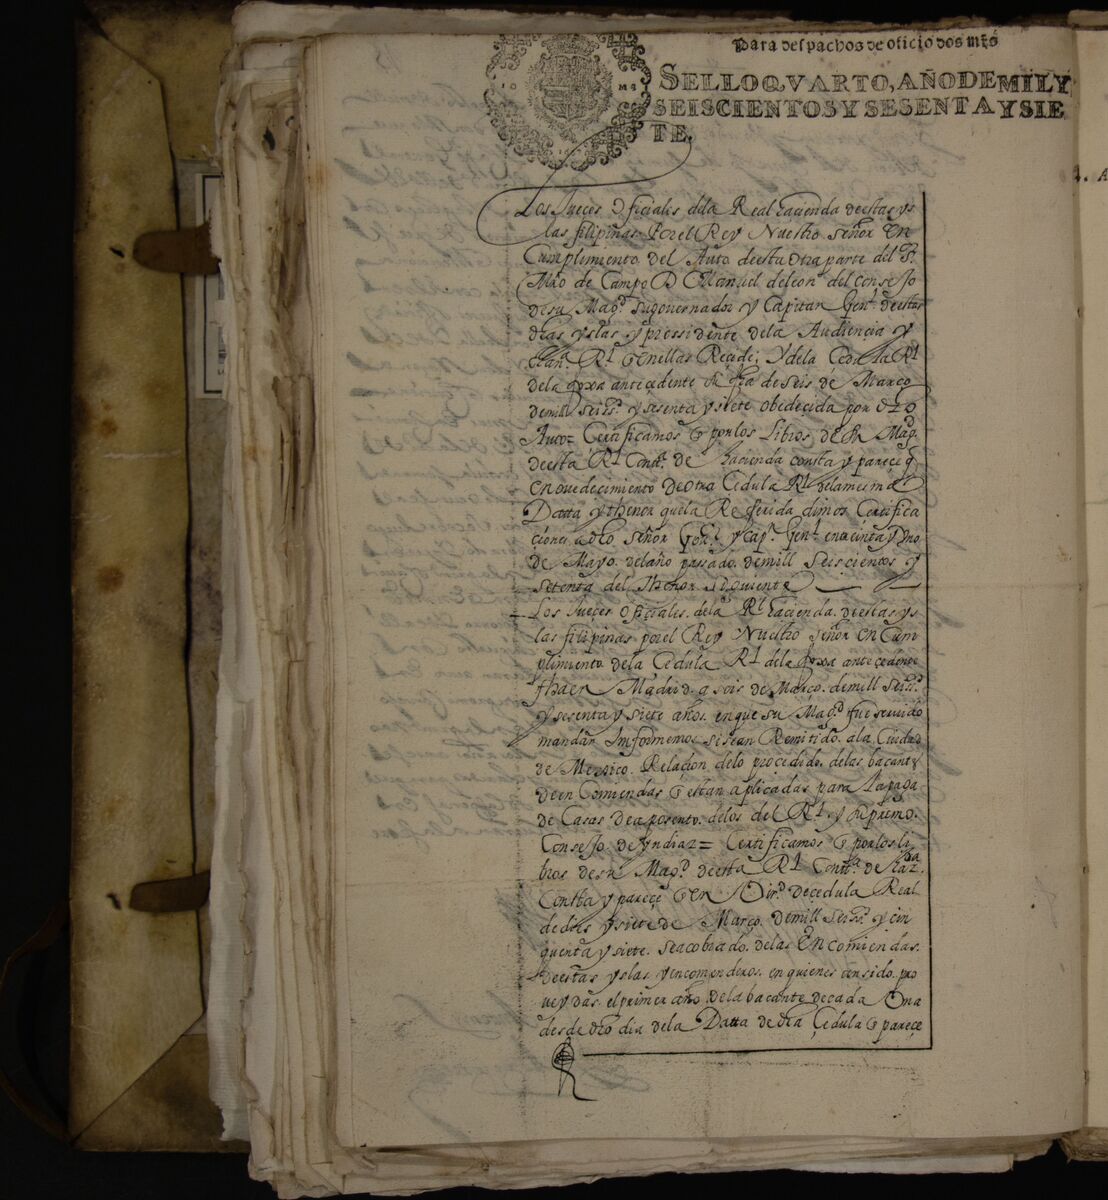 Para despachos de oficio dos mrs
SELLO QVARTO, AÑO DE MIL Y
SEISCIENTOS Y SESENTA Y SIE
TE.
Los Jueces Oficiales dela Real hacienda de estas ys
las filipinas Por el Rey Nuestro Señor En
Cumplimiento del Auto de esta otra parte del Sr.
Mro de Campo D Manuel de leon del Consejo
de su Magd. su governador y Capitan Genl. de estas
dhas yslas y pressidente dela Audiencia y
Chanza. Rl. q en ellas Recide; Y dela Cedula Rl
dela foxa antecedente su fha de seis de Março
de mill seiss. y sesenta y siete obedecida por dho
Auto = Certificamos q por los Libros de su Magd.
de esta Rl. Contta. de hacienda consta y pareçe q
en ovedecimiento de otra Cedula Rl. dela mesma
Datta y thenor que la Referida dimos Certifica
çiones a dho señor Govor. y Capn. Genl. en treinta y Uno
de Mayo. del año passado de mill Seiscientos y
setenta del Thenor Siguiente
Los Jueçes ofiçiales. dela Rl. hacienda. de estas ys
las filipinas por el Rey Nuestro Señor En Cum
plimiento dela Cedula Rl dela foxa antecedente
fha en Madrid. a seis de Março. de mill Seiss.
y sesenta y siete años. en que su Magd. fue servido
mandar Informemos si se an Remitido. ala Ciudad
de Mexico. Relaçion. delo procedido. delas bacantes
de en Comiendas q estan aplicadas para la paga
de Casas de aposento. delos del Rl. y supremo.
Consejo. de Yndias = Certificamos q por los li
bros de su Magd. de esta Rl Contta. de hazda.
Consta y pareçe q En Virtd. de cedula Real
de dies y siete de Março. de mill Seiss. y cin
quenta y siete. se a cobrado. delas Encomiendas.
de estas yslas y encomenderos. en quienes an sido. pro
veydas. el primer año. dela bacante de cada Una
desde dho dia dela Datta de dha Çedula q pareçe